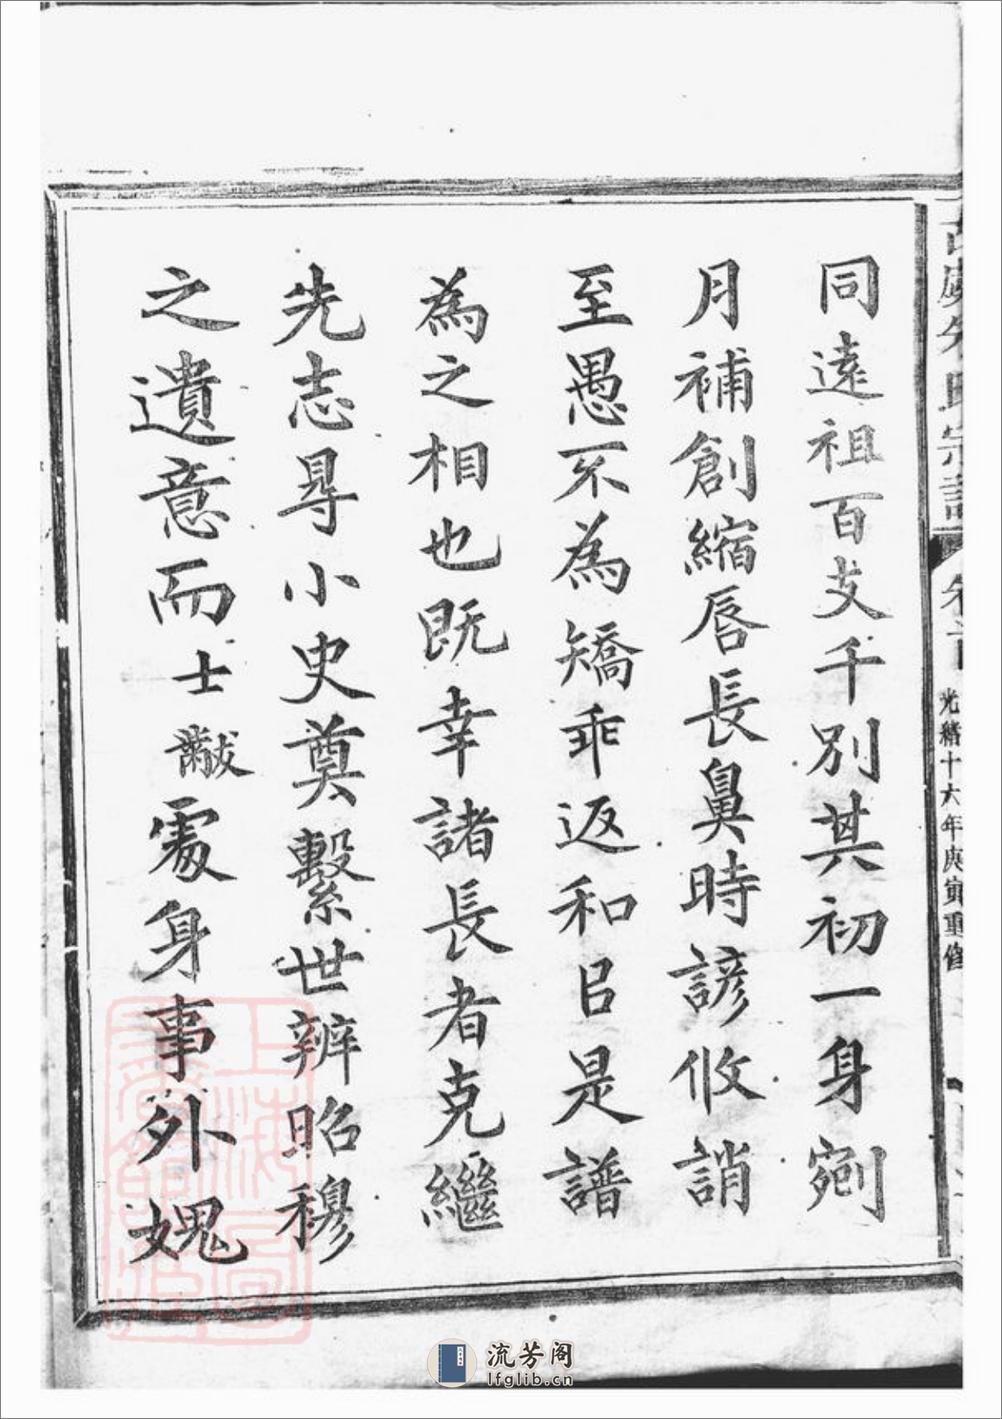 古虞朱氏宗譜 卷首 光緒十六年庚寅重修
同遠祖百支千別其初一身剜
月補創縮唇長鼻時諺攸誚
至愚不為矯乖返和㠯是譜
為之相也既幸諸長者克繼
先志㝵小史奠繫世辨昭穆
之遺意而士黻處身事外媿
流芳阁
lfglib.cn